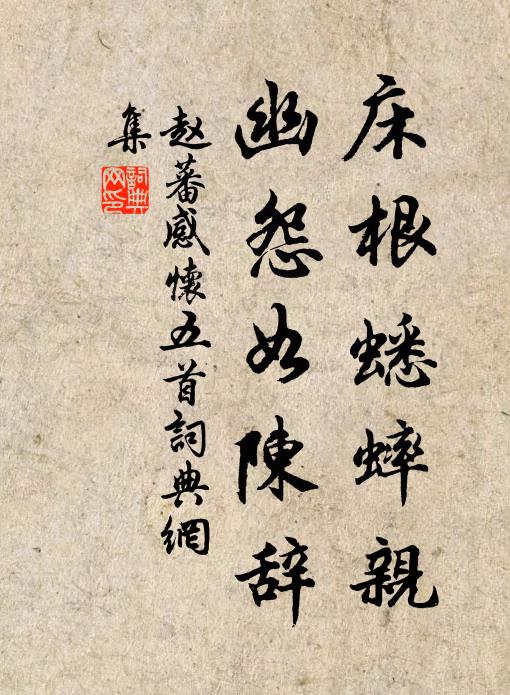 床根蟋蟀親
幽怨如陳辞
赵蕃感懷五首詞典網
集
詞典網印